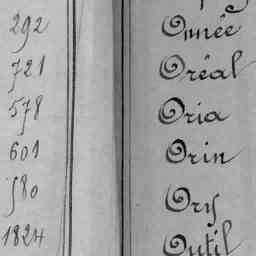 292 Onnée
721 Oréal
578 Oria
601 Orin
580 Ory
1824 Outil